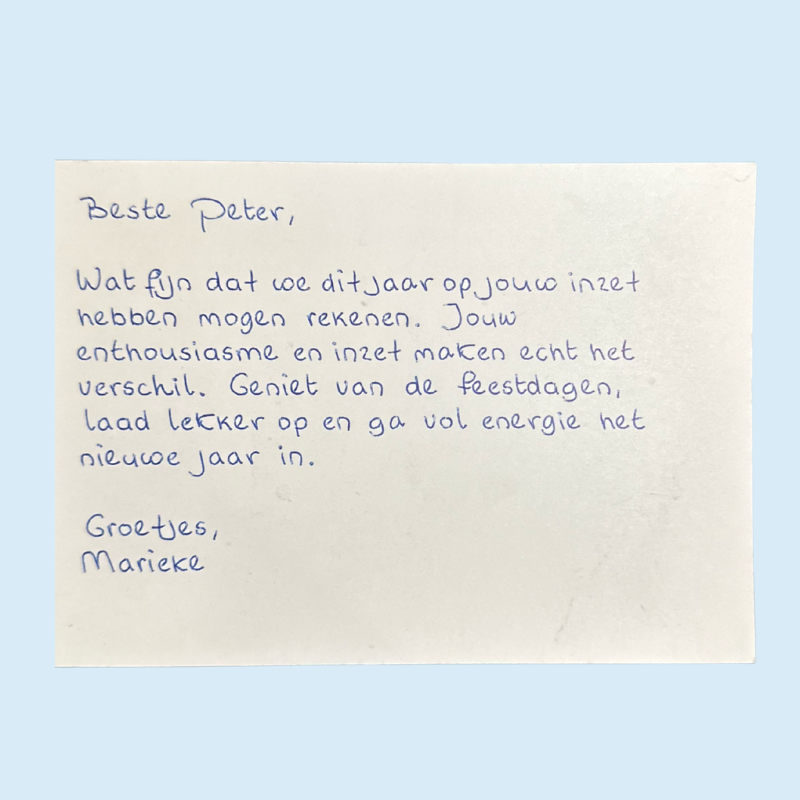 Beste Peter,
Wat fijn dat we dit jaar op jouw inzet
hebben mogen rekenen. Jouw
enthousiasme en inzet maken echt het
verschil. Geniet van de feestdagen,
laad lekker op en ga vol energie het
nieuwe jaar in.
Groetjes,
Marieke